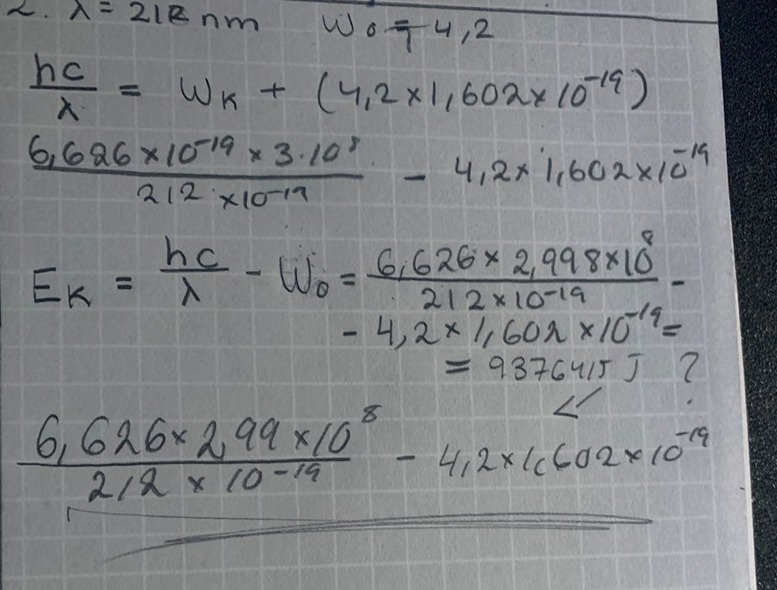 2. λ = 212 nm W₀ = 4,2
hc/λ = Wₖ + (4,2×1,602×10⁻¹⁹)
6,626×10⁻¹⁹×3·10⁸/212×10⁻¹⁹ - 4,2×1,602×10⁻¹⁹
Eₖ = hc/λ - W₀ = 6,626×2,998×10⁸/212×10⁻¹⁹ -
- 4,2×1,602×10⁻¹⁹=
= 9376415 J ?
6,626×2,99×10⁸/212×10⁻¹⁹ - 4,2×1,602×10⁻¹⁹